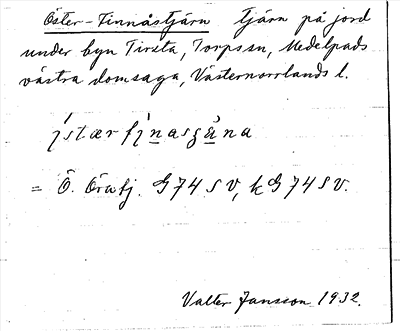 Öster-Finnåstjärn tjärn på jord
under byn Tirsta, Torps sn, Medelpads
västra domsaga, Västernorrlands l.
= Ö. Örafj. G74SV, kG74SV.
Valter Jansson 1932.